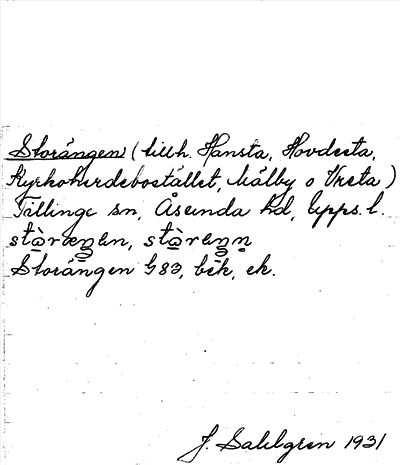 Storängen (tillh. Hansta, Hovdesta,
Kyrkoherdebostället, Målby o Vreta)
Tillinge sn, Åsunda hd, Upps. l.
Storängen G83, bek, ek.
J. Sahlgren 1931